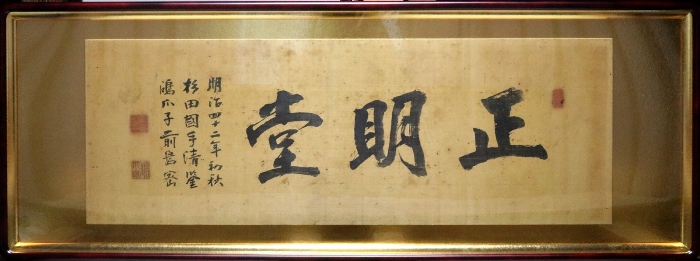 正明堂
明治四十二年初秋
杉田國手清鑒
鴻爪子前島密